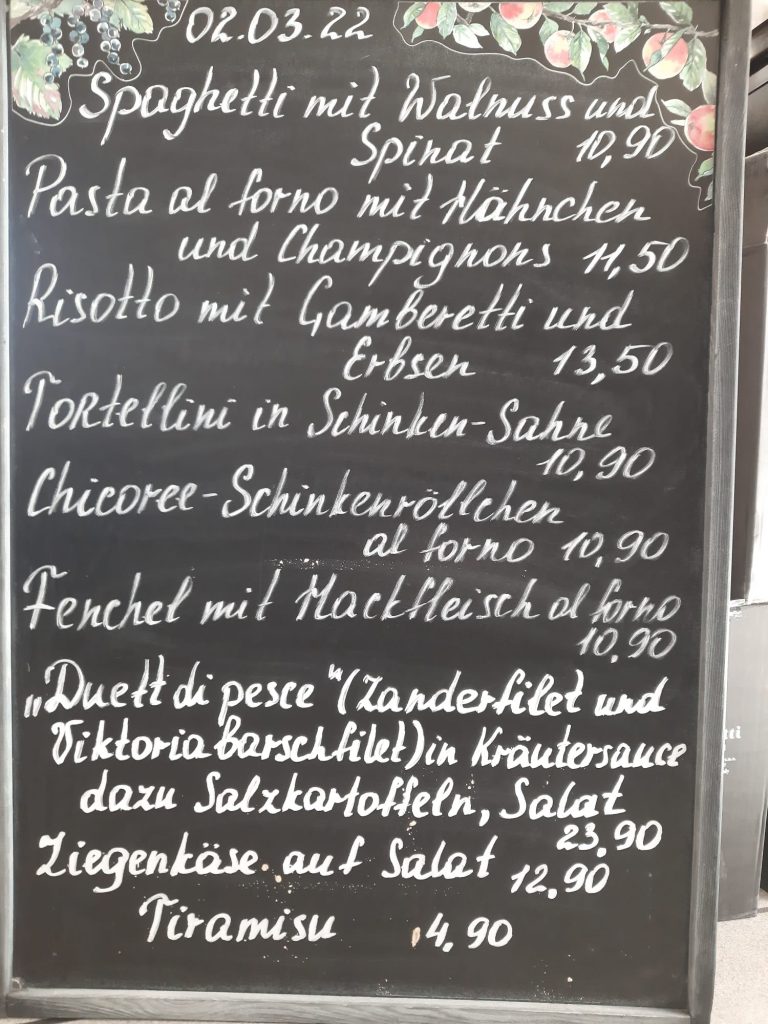 02.03.22
Spaghetti mit Walnuss und
Spinat 10,90
Pasta al forno mit Hähnchen
und Champignons 11,50
Risotto mit Gamberetti und
Erbsen 13,50
Tortellini in Schinken-Sahne
10,90
Chicoree-Schinkenröllchen
al forno 10,90
Fenchel mit Hackfleisch al forno
10,90
„Duett di pesce“ (Zanderfilet und
Viktoriabarschfilet) in Kräutersauce
dazu Salzkartoffeln, Salat
23,90
Ziegenkäse auf Salat 12,90
Tiramisu 4,90